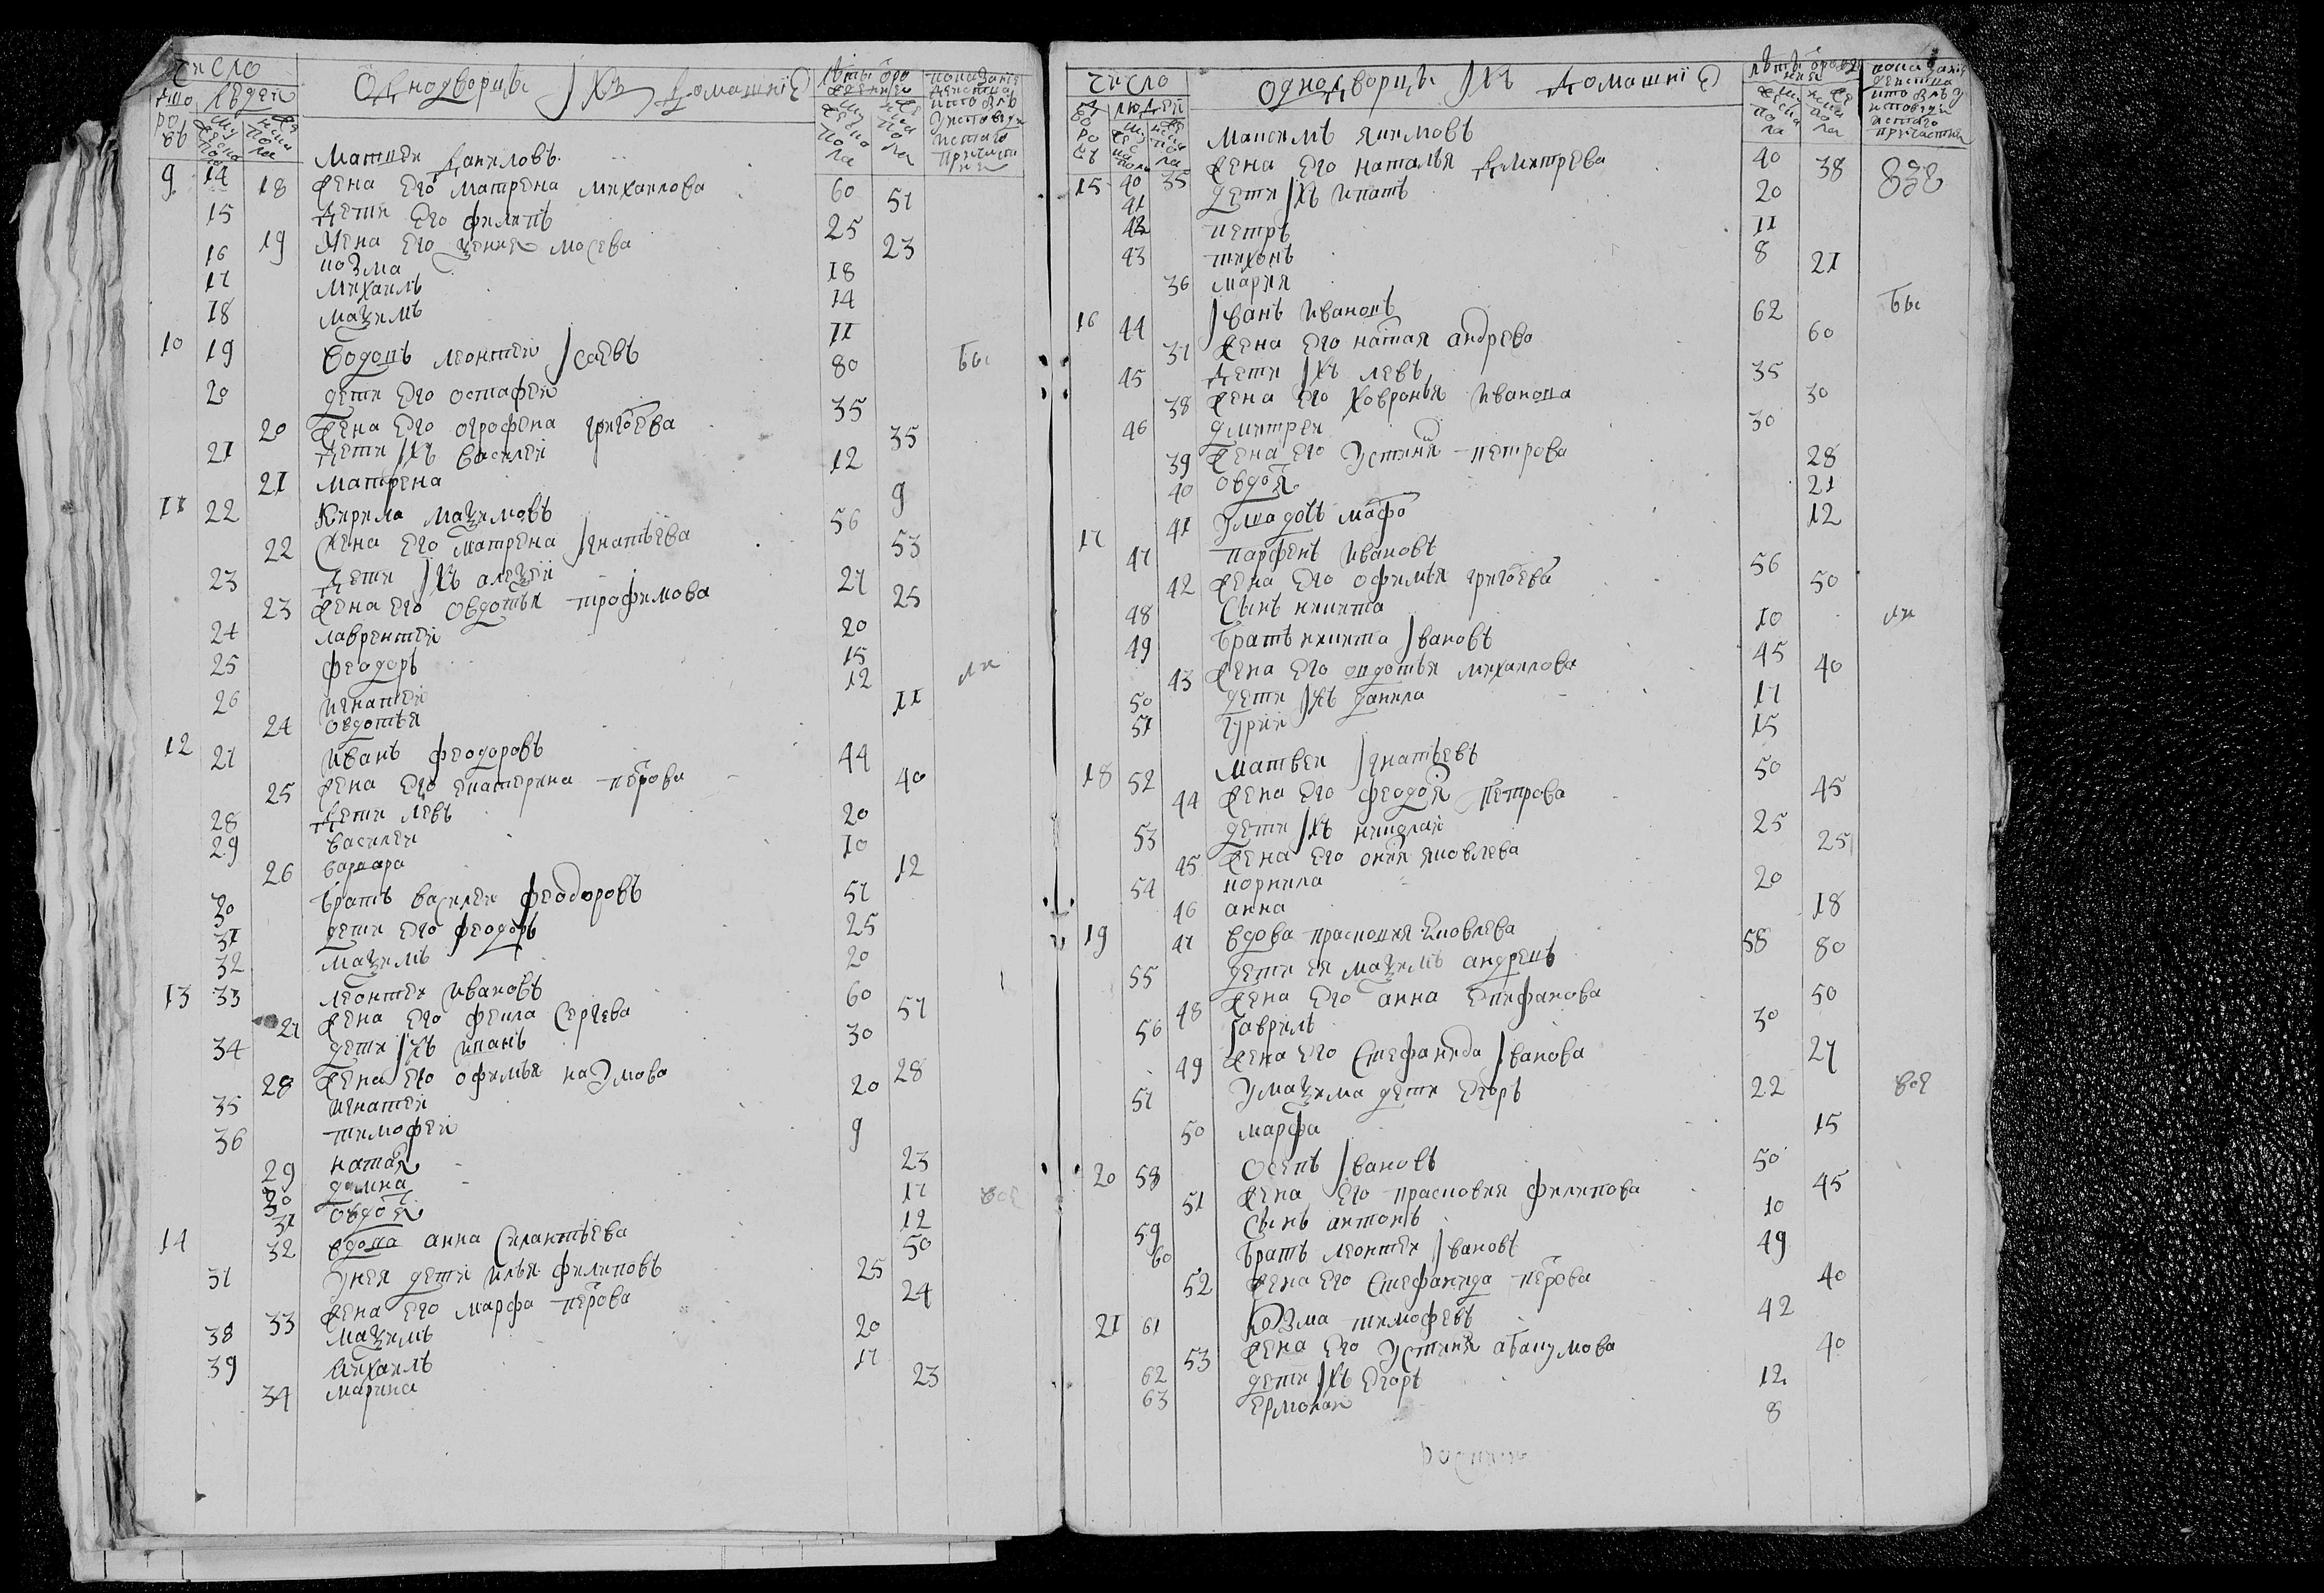 число
Однодворцы Ихъ домашнiе
лѣты ѿ рожденiя
дворовъ
людей
мужеска пола
женска пола
9 14 Матвеи даниловъ 60
18 Жена его матрена михаилова 57
15 дети его филипъ 25
19 Жена его моſева 23
16 козма 18
17 михаилъ 14
18 мазимъ 11
10 19 Вдовъ леонтеи Iсаевъ 80 бы
20 дети его остафеи 35
20 Жена его огрофена григоева 35
21 дети Iхъ василеи 12
21 матрена 9
11 22 Кирила мазимовъ 56
22 Жена его матрена Iгнатьева 53
23 дети Iхъ алезеи 27
23 Жена его овдотья трофимова 25
24 лаврентеи 20
25 феодоръ 15
26 игнатеи 12 ли
24 овдотья 11
12 27 иванъ феодоровъ 44
25 Жена его екатерина перова 40
28 дети левъ 20
29 василеи 10
26 варвара 12
30 братъ василеи феодоровъ 57
31 дети его феодоръ 25
32 мазимъ 20
13 33 леонтеи ивановъ 60
27 Жена его фекла сергева 57
34 дети Iхъ иванъ 30
28 Жена его офимья наумова 28
35 игнатеи 20
36 тимофеи 9
29 натая 23
30 домна 17 все
31 овдоя 12
14 32 вдова анна силантьева 50
37 у нея дети илья филиповъ 25
33 Жена его марфа перова 24
38 мазимъ 20
39 михаилъ 17
34 марина 23
число
однодворцы Iхъ домашнiе
лѣты ѿ рожденiя
людей
мужеска пола
женска пола
15 40 Максимъ якимовъ 40
35 Жена его наталья дмитрева 38 все
41 дети Iхъ игнатъ 20
42 петръ 11
43 тихонъ 8
36 мария 21
16 44 Iванъ ивановъ 62 бы
37 Жена его натая андрева 60
45 дети Iхъ левъ 35
38 Жена его ховронья иванова 30
46 дмитреи 30
39 Жена его устиня петрова 28
40 овдоя 21
41 у мафа 12
17 47 парфенъ ивановъ 56
42 Жена его офимья григоева 50
48 Сынъ никита 10 ли
49 братъ никита Iвановъ 45
43 Жена его овдотья михаилова 40
50 дети Iхъ данила 17
51 гурии 15
18 52 матвеи Iгнатьевъ 50
44 Жена его феодоя петрова 45
53 дети Iхъ николаи 25
45 Жена его яковлева 25
54 корнила 20
46 анна 18
19 47 вдова прасковия яковлева 80
55 дети ея мазимъ андревъ 58
48 Жена его анна епифанова 50
56 гаврилъ 30
49 Жена его стефанида Iванова 27
57 у мазима дети егоръ 22 все
50 марфа 15
20 58 осепъ Iвановъ 50
51 Жена его прасковия филипова 45
59 Сынъ антонъ 10
60 братъ леонтеи Iвановъ 49
52 Жена его стефанида перова 40
21 61 козма тимофевъ 42
53 Жена его устиня абакумова 40
62 дети Iхъ егоръ 12
63 ермолаи 8